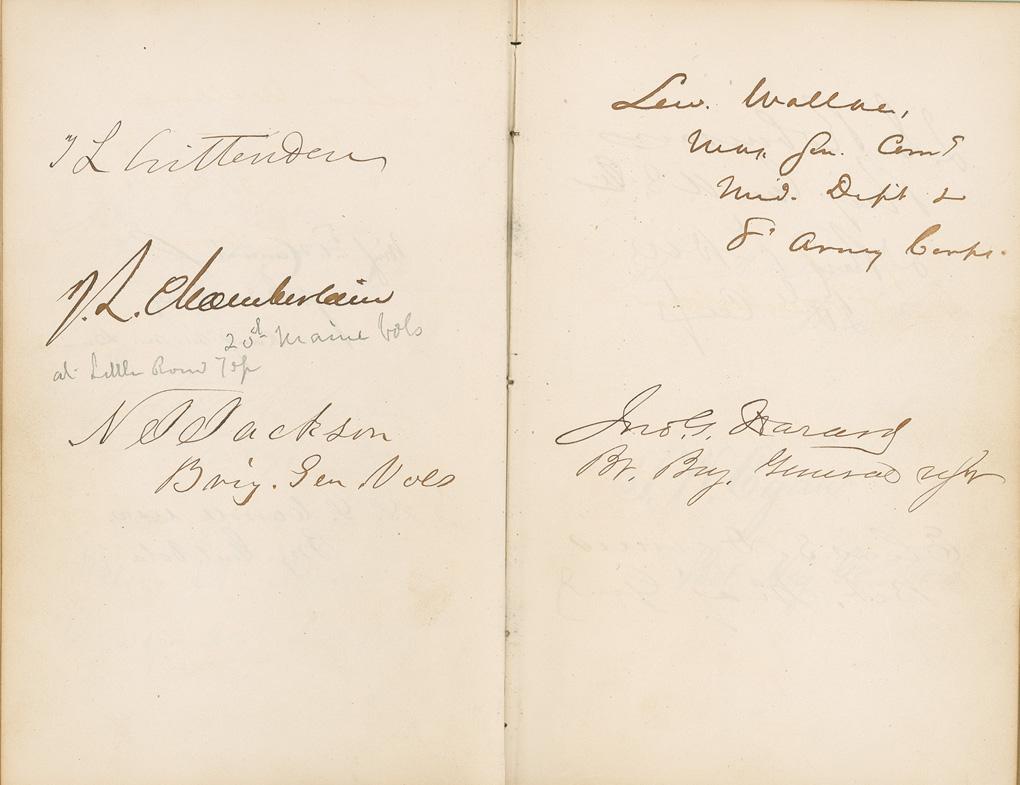 T L Crittenden
J. L. Chamberlain
20th Maine Vols
at Little Round Top
N J Jackson
Brig. Gen Vols
Lew. Wallace,
Maj. Gen. Comd
Mid. Dept &
8" Army Corps.
Jno. G. Hazard
Bt. Brig. General